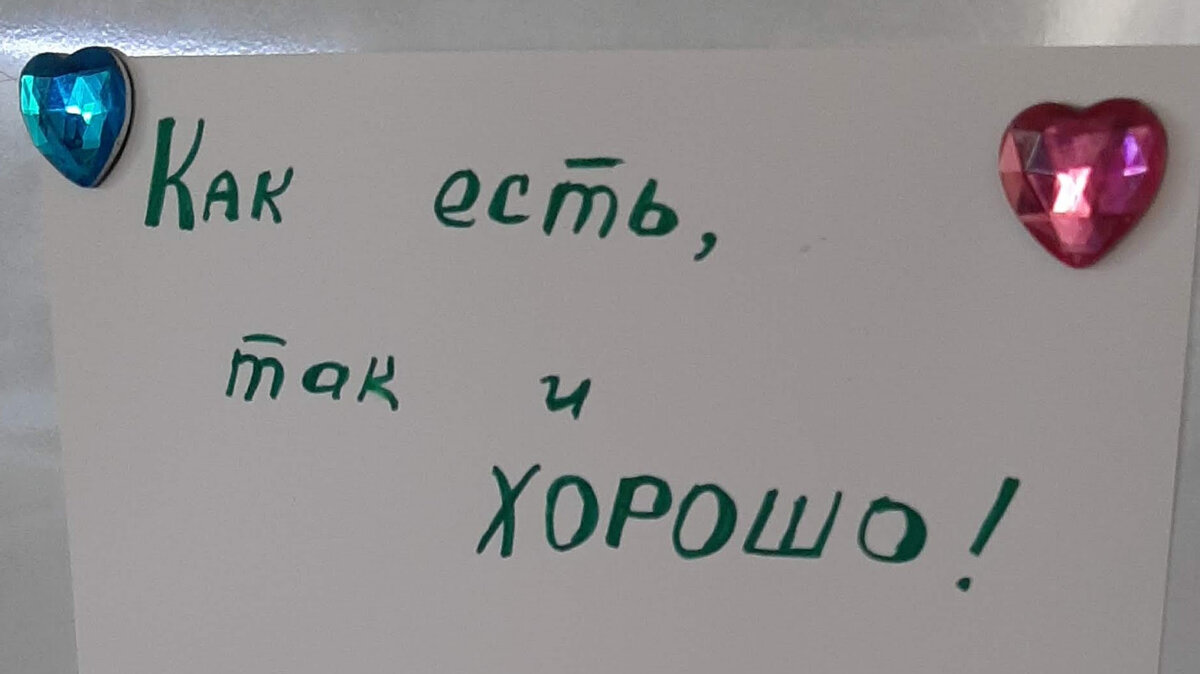 Как есть,
так и
ХОРОШО!